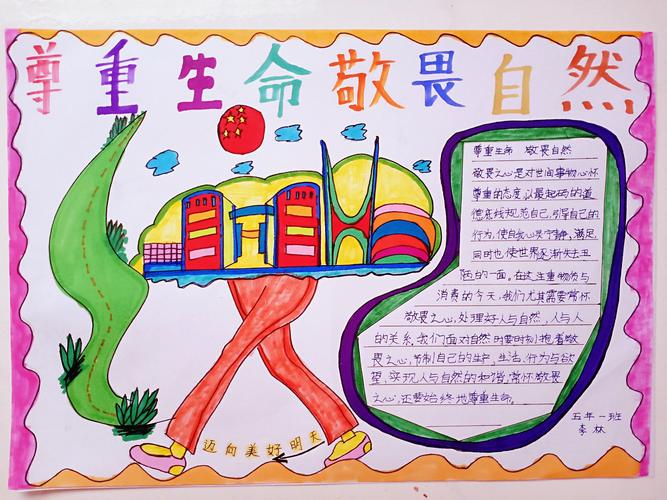 尊重生命敬畏自然
尊重生命 敬畏自然
敬畏之心是对世间事物心怀
尊重的态度,以最起码的道
德底线规范自己,引导自己的
行为,使自我心灵宁静,满足
同时也使世界逐渐失去丑
陋的一面,在这注重物质与
消费的今天,我们尤其需要常怀
敬畏之心,处理好人与自然,人与人
的关系,我们面对自然时要时刻抱着敬
畏之心,节制自己的生产,生活,行为与欲
望,实现人与自然的和谐,常怀敬畏
之心,还要始终地尊重生命。
五年一班
李林
迈向美好明天